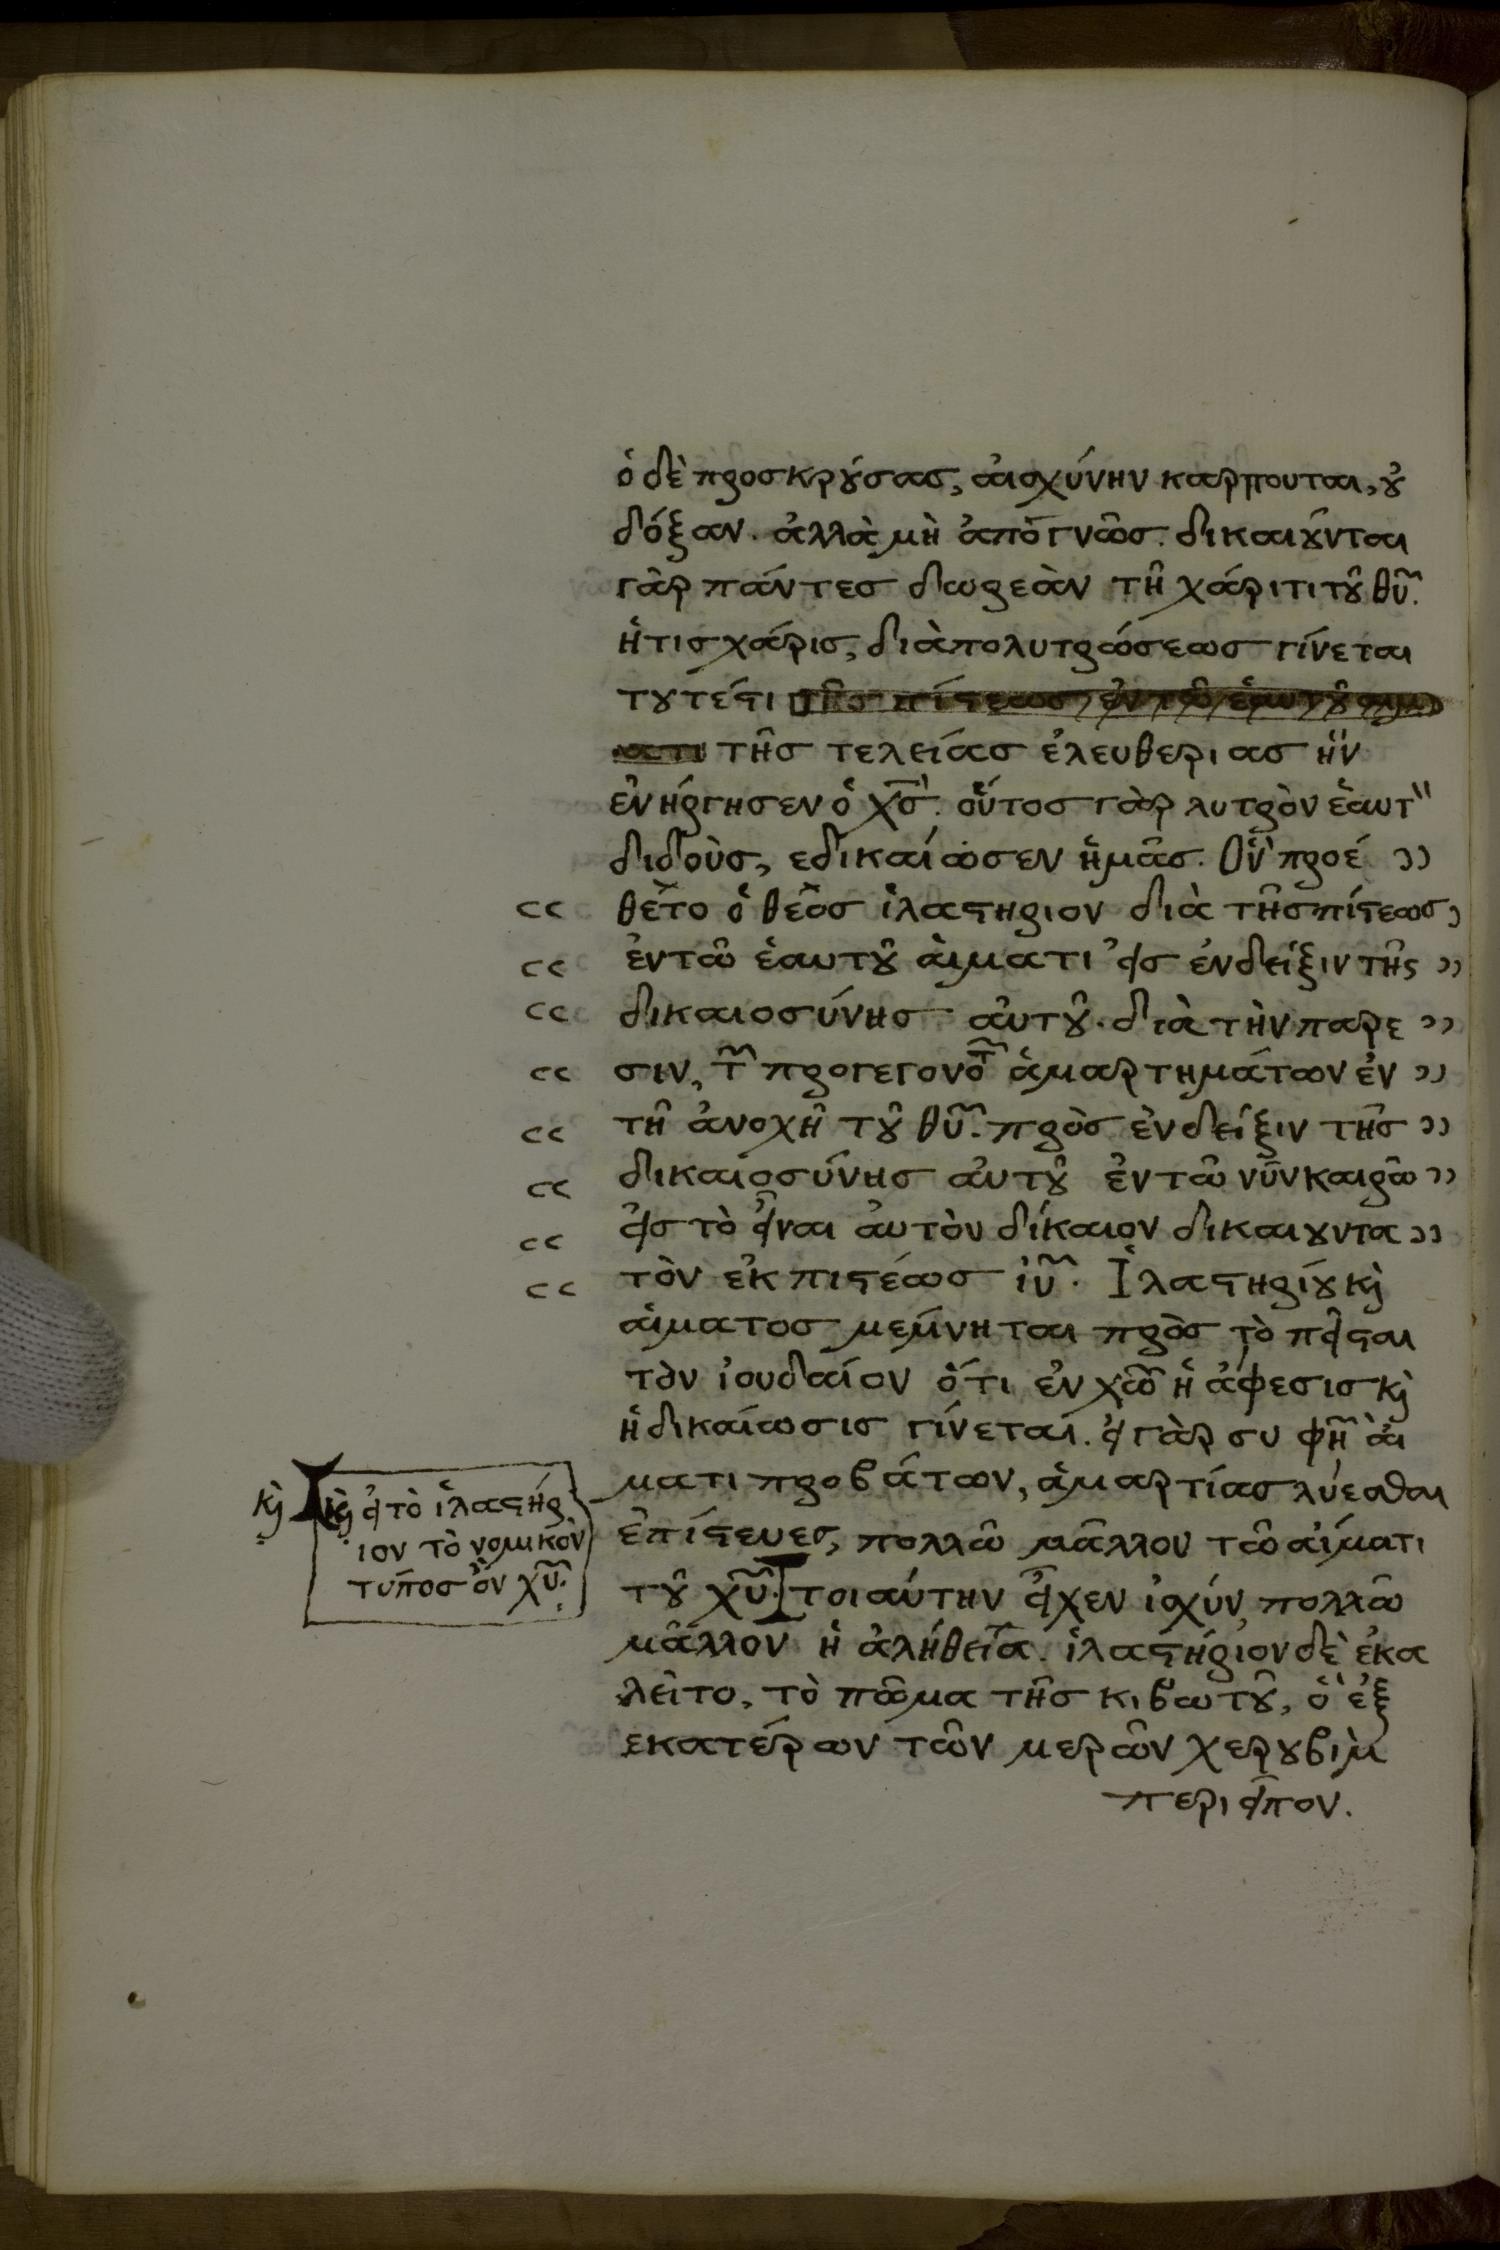 ὁ δὲ προσκρούσας, αἰσχύνην καρπουται, οὐ
δόξαν. ἀλλὰ μὴ ἀπόγνῶς. δικαιοῦνται
γὰρ πάντες δωρεὰν τῆ χάριτι τοῦ θυ̅.
ἥτις χάρις, διἀπολυτρώσεως γίνεται
τουτέστι τῆς πίστεως ἐν τῶ ἑαυτοῦ αἱμ
ατι τῆς τελείας ἐλευθεριας ἣν
ἐνήργησεν ὁ χς̅. οὗτος γὰρ λυτρὸν ἑαυτ
διδοὺς, εδικαίωσεν ἡμᾶς. Ὃν προέ ››
‹‹ θετο ὁ θεὸς ἱλαστηριον διὰ τῆς πίστεως ›
‹‹ ἐντῶ ἑαυτοῦ ἁιματι εἰς ἐνδείξιν τῆς ››
‹‹ δικαιοσύνης αὐτοῦ. διὰ τὴν παρε ››
‹‹ σιν, τ͂ προγεγονοτ͂ ἁμαρτημάτων ἐν ››
‹‹ τῆ ἀνοχῆ τοῦ θυ̅. πρὸς ἐνδείξιν τῆς ››
‹‹ δικαιοσύνης αὐτοῦ ἐν τῶ νῦν καιρῶ ››
‹‹ εἰς τὸ εἶναι ἀυτὸν δίκαιον δικαιουντα ››
‹‹ τὸν ἐκ πιστέως ἰυ̅. Ἱλαστηρίου κ̀
αἵματος μεμνηται πρὸς τὸ πεῖσαι
τὸν ἰουδαίον ὅτι ἐν χῶ̅ ἡ ἀφεσις κ̀
ἡ δικαίωσις γίνεται. εἰ γὰρ συ φη̅ ἁι
ματι προβάτων, ἁμαρτίας λύεσθαι
ἐπίστευες, πολλῶ μᾶλλον τῶ αἵματι
τοῦ χυ̅. τοιαύτην εἶχεν ἰσχύν, πολλῶ
μᾶλλον ἡ ἀλήθεια. ἱλαστήριον δὲ ἐκα
λεῖτο, τὸ πῶμα τῆς κιβωτοῦ, ὃ ἐξ
εκατέρων τῶν μερῶν χερουβιμ
περιεῖπον.
κ̀ κ̀ εἰ τὸ ἱλαστήρ
ιον τὸ νομικὸν
τύπος ὂν χυ̅.